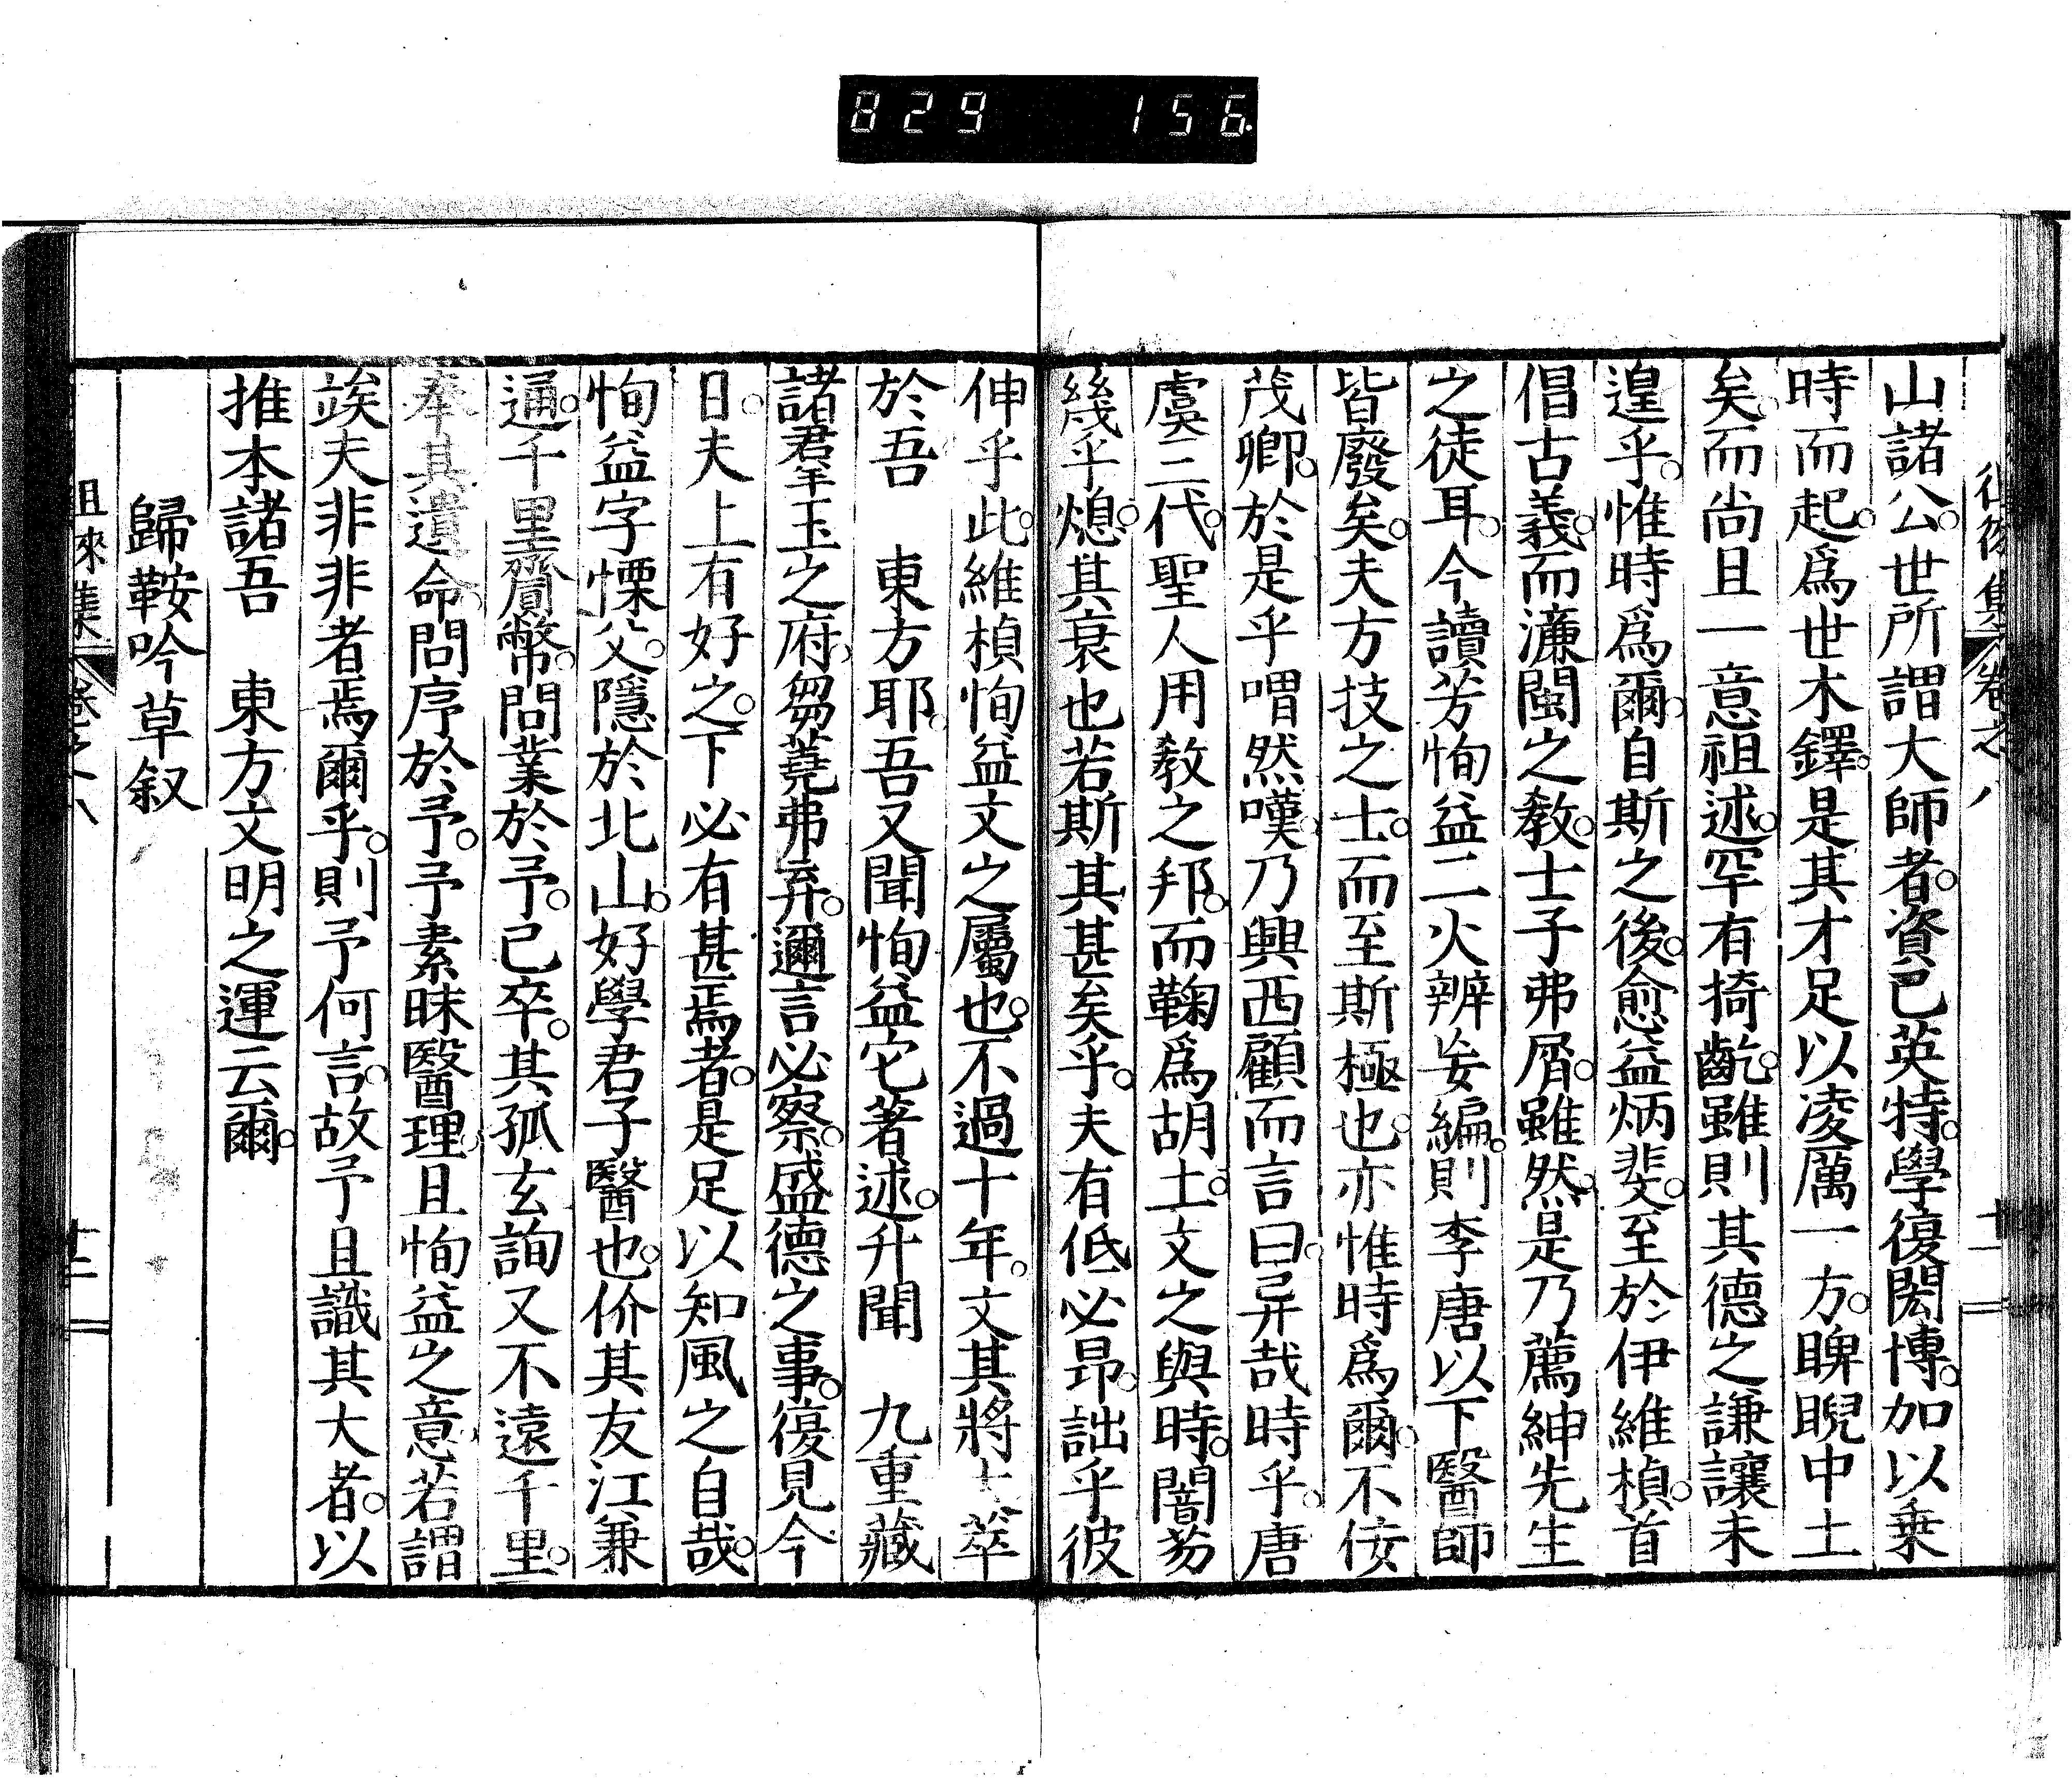 829 156.
徂徠集 卷之八 十一
山諸公。世所謂大師者。資已英特。學復閎博。加以乗
時而起。爲世木鐸。是其才足以凌厲一方。睥睨中土
矣。而尚且一意祖述。罕有掎齕。雖則其德之謙讓未
遑乎。惟時爲爾。自斯之後。愈益炳斐。至於伊維楨。首
倡古義。而濂閩之教。士子弗屑。雖然。是乃薦紳先生
之徒耳。今讀芳恂益二火辨妄編。則李唐以下醫師
皆廢矣。夫方技之士。而至斯極也。亦惟時爲爾。不侫
茂卿。於是乎喟然嘆。乃興西顧而言曰。异哉時乎。唐
虞三代。聖人用教之邦。而鞠爲胡土。文之與時。闇芴
幾乎熄。其衰也若斯其甚矣乎。夫有低必昂。詘乎彼
伸乎此。維楨恂益文之屬也。不過十年。文其將大萃
於吾　東方耶。吾又聞恂益它著述。升聞　九重藏
諸君羊玉之府。芻蕘弗弃。邇言必察。盛德之事。復見今
日。夫上有好之。下必有甚焉者。是足以知風之自哉。
恂益字慄父。隱於北山。好學君子醫也。价其友江兼
通。千里齎幣。問業於予。己卒。其孤玄詢又不遠千里。
奉其遺命。問序於予。予素昧醫理。且恂益之意。若謂
竢夫非非者焉爾乎。則予何言。故予且識其大者。以
推本諸吾　東方文明之運云爾。
歸鞍吟草叙
徂徠集 卷之八 十二